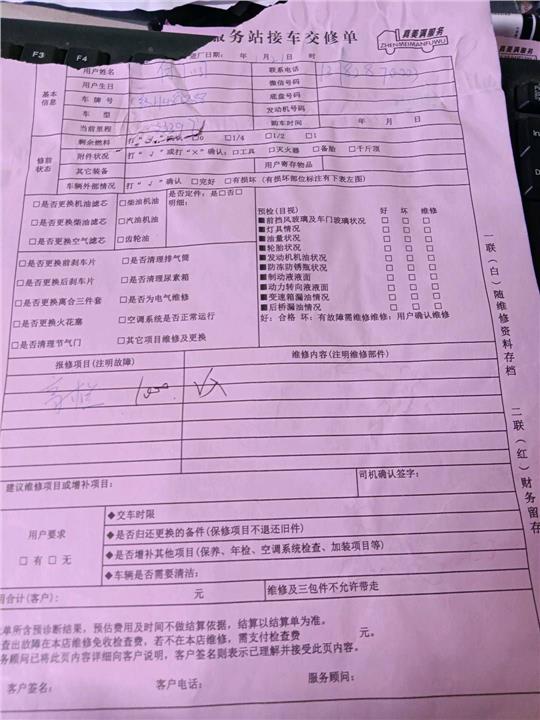 服务站接车交修单
真美满服务
ZHENMEIMANFUWU
F3
厂日期： 年 月 21 日 时
基本信息
用户姓名
联系电话
用户生日
微信号码
车牌号
底盘号码
车型
发动机号
当前里程
购车时间 年 月 日
修前状态
剩余燃料 打“ □0 □1/4 □1/2 □1
附件状况 打“√”或打“×”确认：□工具 □灭火器 □备胎 □千斤顶
其它装备
用户寄存物品
车辆外部情况 打“√”确认 □完好 □有损坏（有损坏部位标注有下表左图）
□是否更换机油滤芯 □柴油机油
□是否更换柴油滤芯 □汽油机油
□是否更换空气滤芯 □齿轮油
是否定件：是□否□
明细：
□是否更换前刹车片 □是否清理排气筒
□是否更换后刹车片 □是否清理尿素箱
□是否更换离合三件套 □是否为电气维修
□是否更换火花塞 □空调系统是否正常运行
□是否清理节气门 □其它项目维修及更换
预检（目视） 好 坏 维修
■前挡风玻璃及车门玻璃状况 □ □ □
■灯具情况 □ □ □
■油量状况 □ □ □
■轮胎状况 □ □ □
■发动机机油状况 □ □ □
■防冻防锈瓶状况 □ □ □
■制动液液面 □ □ □
■动力转向液液面 □ □ □
■变速箱漏油情况 □ □ □
■后桥漏油情况 □ □ □
好：合格 坏：有故障需维修维修：用户确认维修
报修项目（注明故障）
维修内容（注明维修部件）
建议维修项目或增补项目：
司机确认签字：
用户要求
□有□无
◆交车时限
◆是否归还更换的备件（保修项目不退还旧件）
◆是否增补其他项目（保养、年检、空调系统检查、加装项目等）
◆车辆是否需要清洁：
用合计（客户）： 元
维修及三包件不允许带走
单所含预诊断结果，预估费用及时间不做结算依据，结算以结算单为准。
查出故障在本店维修免收检查费，若不在本店维修，需支付检查费 元。
务顾问已将此页内容详细向客户说明，客户签名则表示已理解并接受此页内容。
客户签名： 客户电话： 服务顾问：
一联（白）随维修资料存档
二联（红）财务留存